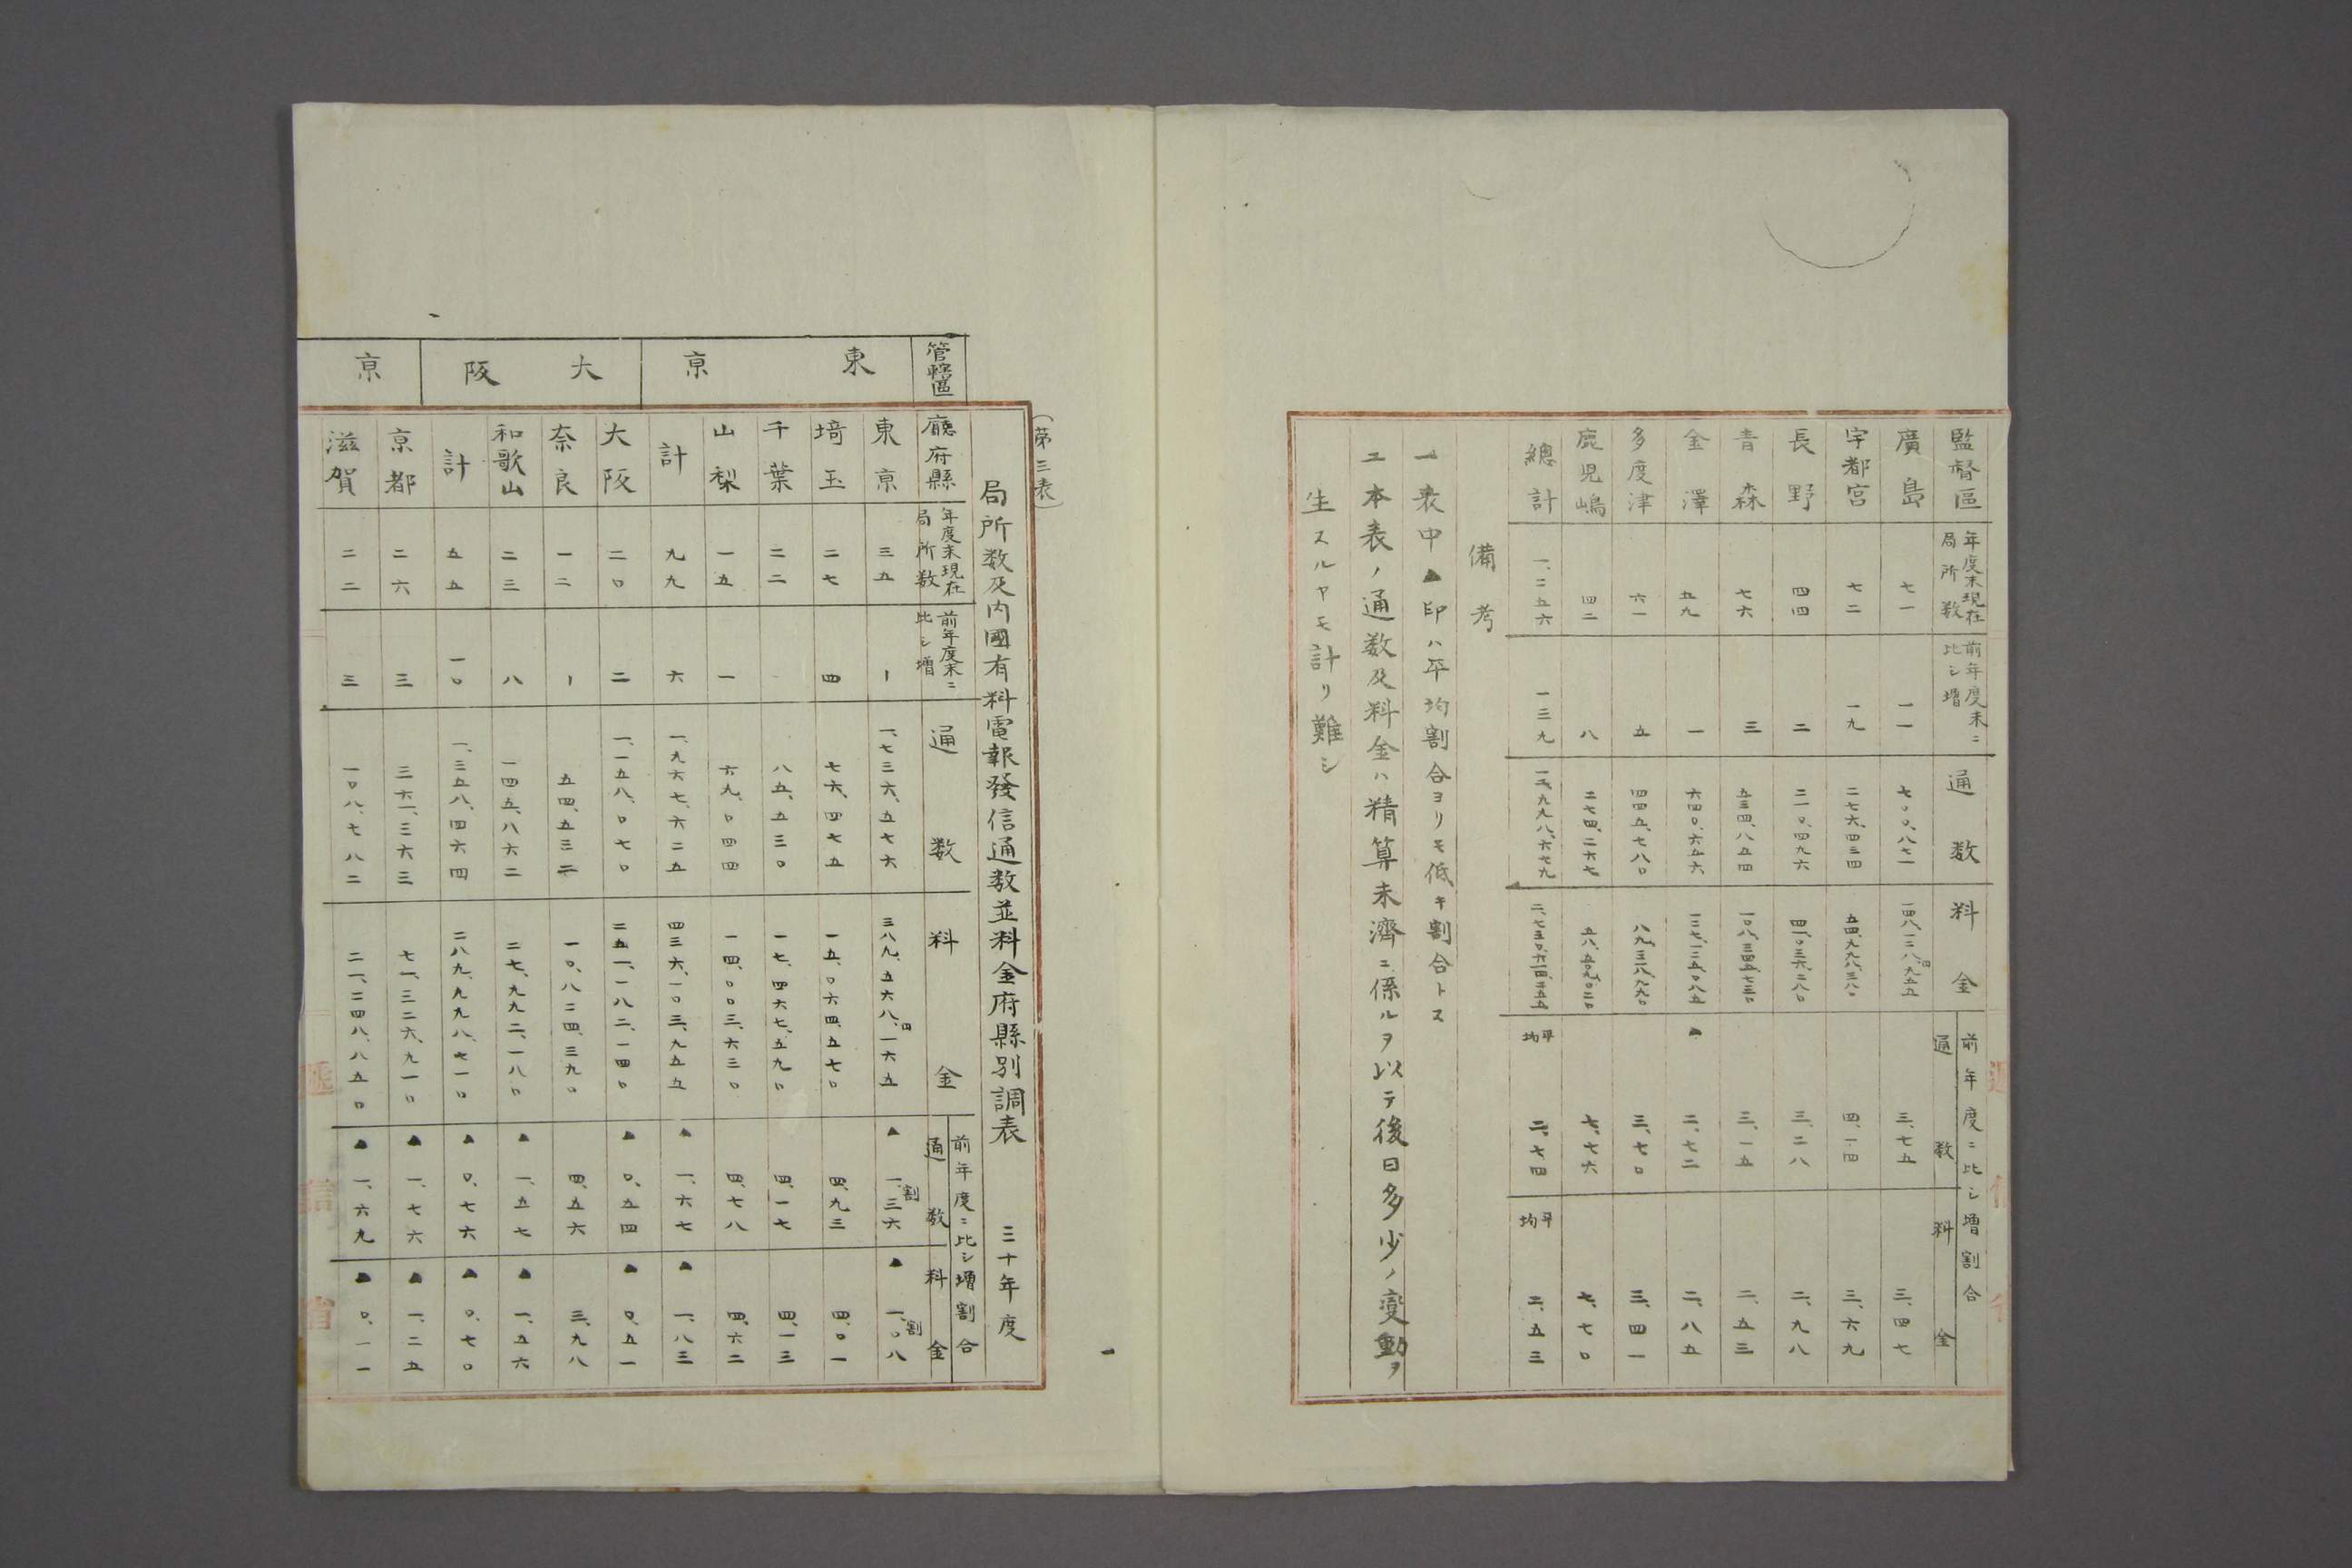 監督區 年度末現在局所数 前年度末ニ比シ増 通数 料金 前年度ニ比シ増割合 通数 料金
廣島 七一 一一 七〇〇、八七一 一四八、一二八、九五五 三、七五 三、四七
宇都宮 七二 一九 二七六、四三四 五四、九九八、三八〇 四、一四 三、六九
長野 四四 二 二一〇、四九六 四一、〇三六、二八〇 三、二八 二、九八
青森 七六 三 五三四、八五四 一〇八、三四五、七三〇 三、一五 二、五三
金澤 五九 一 六四〇、六五六 一二七、一三五、〇八五 ▲ 二、七二 二、八五
多度津 六一 五 四四五、七八〇 八九、三八九、九〇 三、七〇 三、四一
鹿児嶋 四二 八 二七四、二六七 五八、五〇九、〇二〇 七、七六 七、七〇
總計 一、二五六 一三九 一二、九九八、六七九 二、七五〇、六一四、二五五 平均 二、七四 平均 二、五三
備考
一 表中▲印ハ平均割合ヨリモ低キ割合トス
ユ本表ノ通数及料金ハ精算未濟ニ係ルヲ以テ後日多少ノ變動ヲ
生スルヤモ計リ難シ
(第三表)
局所数及内國有料電報發信通数並料金府縣別調表 三十年度
管轄區 廳府縣 年度末現在局所数 前年度末ニ比シ増 通数 料金 前年度ニ比シ増割合 通数 料金
東京
東京 三五 一 一、七三六、五七六 三八九、五六八、一六五 ▲ 一、三六割 ▲ 一、〇八割
埼玉 二七 四 七六、四七五 一五、〇六四、五七〇 四、九三 四、〇一
千葉 二二 八五、五三〇 一七、四六七、五九〇 四、一七 四、一三
山梨 一五 一 六九、〇四四 一四、〇〇三、六三〇 四、七八 四、六二
計 九九 六 一、九六七、六二五 四三六、一〇三、九五五 ▲ 一、六七 ▲ 一、八三
大阪
大阪 二〇 二 一、一五八、〇七〇 二五一、一八二、一四〇 ▲ 〇、五四 ▲ 〇、五一
奈良 一二 一 五四、五三二 一〇、八二四、三九〇 四、五六 三、九八
和歌山 二三 八 一四五、八六二 二七、九九二、一八〇 ▲ 一、五七 ▲ 一、五六
計 五五 一〇 一、三五八、四六四 二八九、九九八、七一〇 ▲ 〇、七六 ▲ 〇、七〇
京
京都 二六 三 三六一、三六三 七一、三二六、九一〇 ▲ 一、七六 ▲ 一、二五
滋賀 二二 三 一〇八、七八二 二一、二四八、八五〇 ▲ 一、六九 ▲ 〇、一一
遞信省